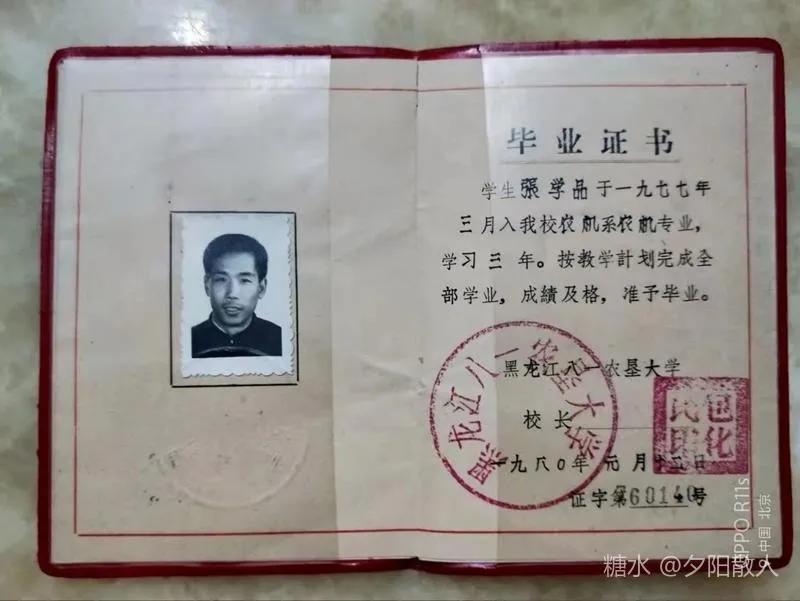 毕业证书
学生張学品于一九七七年
三月入我校农机系农机专业，
学习三年。按教学計划完成全
部学业，成績及格，准予毕业。
黑龙江八一农垦大学
校长
一九八〇年元月十二日
证字第60140号
黑龙江八一农垦大学
OPPO R11s
中国 北京
糖水 @夕阳散人